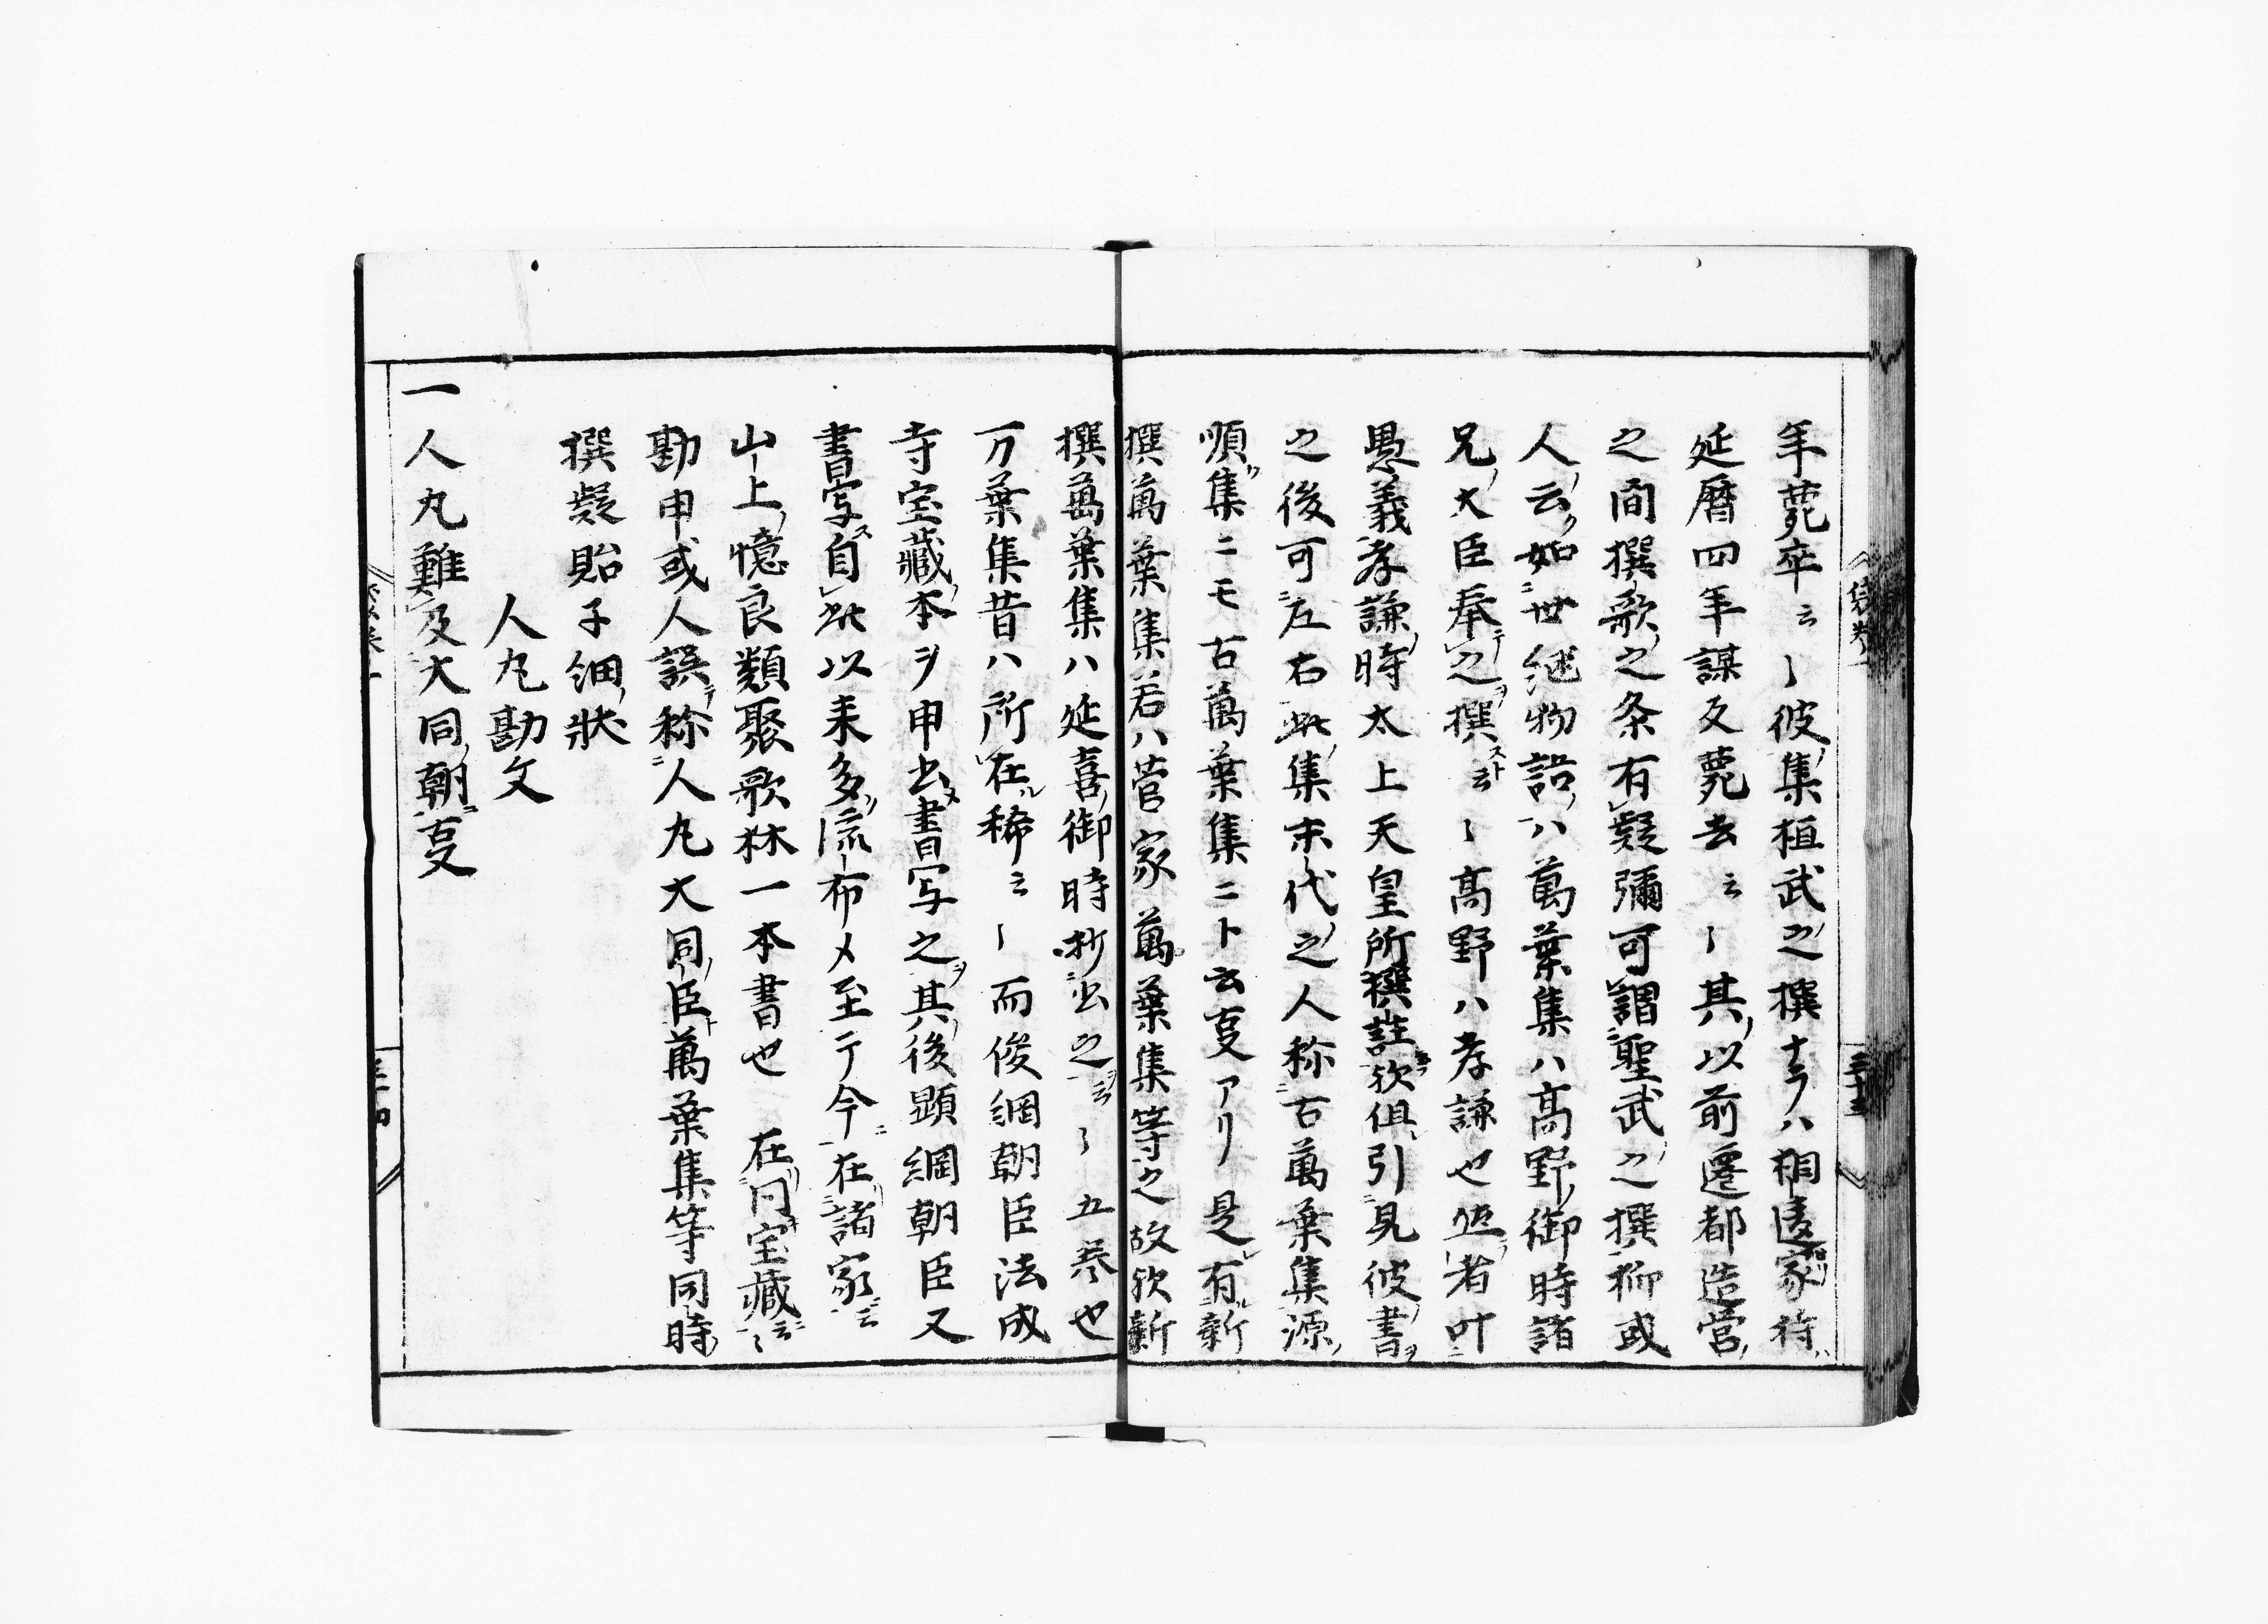 年薨卒云〻彼集桓武之撰ナラハ相違家持
延暦四年謀反薨去云〻其以前遷都造営
之間撰歌之条有疑彌可謂聖武之撰抑或
人云如世継物語ハ萬葉集ハ高野御時諸
兄大臣奉之撰云〻高野ハ孝謙也但者叶
愚義孝謙時太上天皇所撰註欤但引見彼書
之後可左右此集末代之人称古萬葉集源
順集ニモ古萬葉集ニト云叓アリ是有新
撰萬葉集若ハ菅家萬葉集等之故欤新
撰萬葉集ハ延喜御時抄出之云〻五巻也
万葉集昔ハ所在稀云〻而俊綱朝臣法成
寺宝蔵本ヲ申出書写之其後顕綱朝臣又
書写自此以来多流布メ至テ今在諸家云
山上憶良類聚歌林一本書也 在同宝蔵云〻
勘申或人誤称人丸大同臣萬葉集等同時
撰疑貽子細状
人丸勘文
一人丸難及大同朝叓